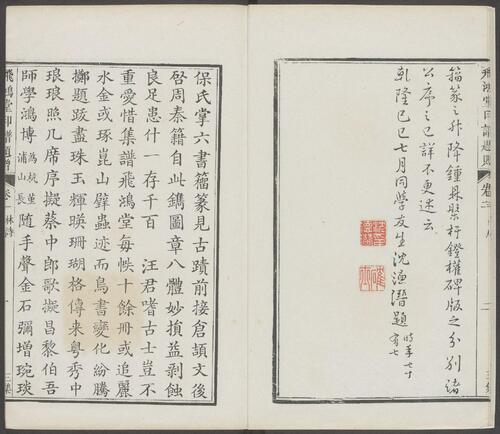 籀篆之升降鍾鼎槃杅鐙權碑版之分別緒
公序之已詳不更述云
乾隆己巳七月同學友生沈德潛題時年七十
有七
保氏掌六書籀篆見古蹟前接倉頡文後
啓周秦籀自此鐫圖章八體妙損益剥蝕
良足患什一存千百 汪君嗜古士豈不
重愛惜集譜飛鴻堂每帙十餘冊或追麗
水金或琢崑山璧蟲迹而鳥書變化紛騰
擲題跋盡珠玉輝暎珊瑚格傳来粤秀中
琅琅照几席序擬蔡中郎歌擬昌黎伯吾
師學鴻博為杭堇浦山長隨手聲金石彌增琬琰
飛鴻堂印譜題辭 卷一 林詩